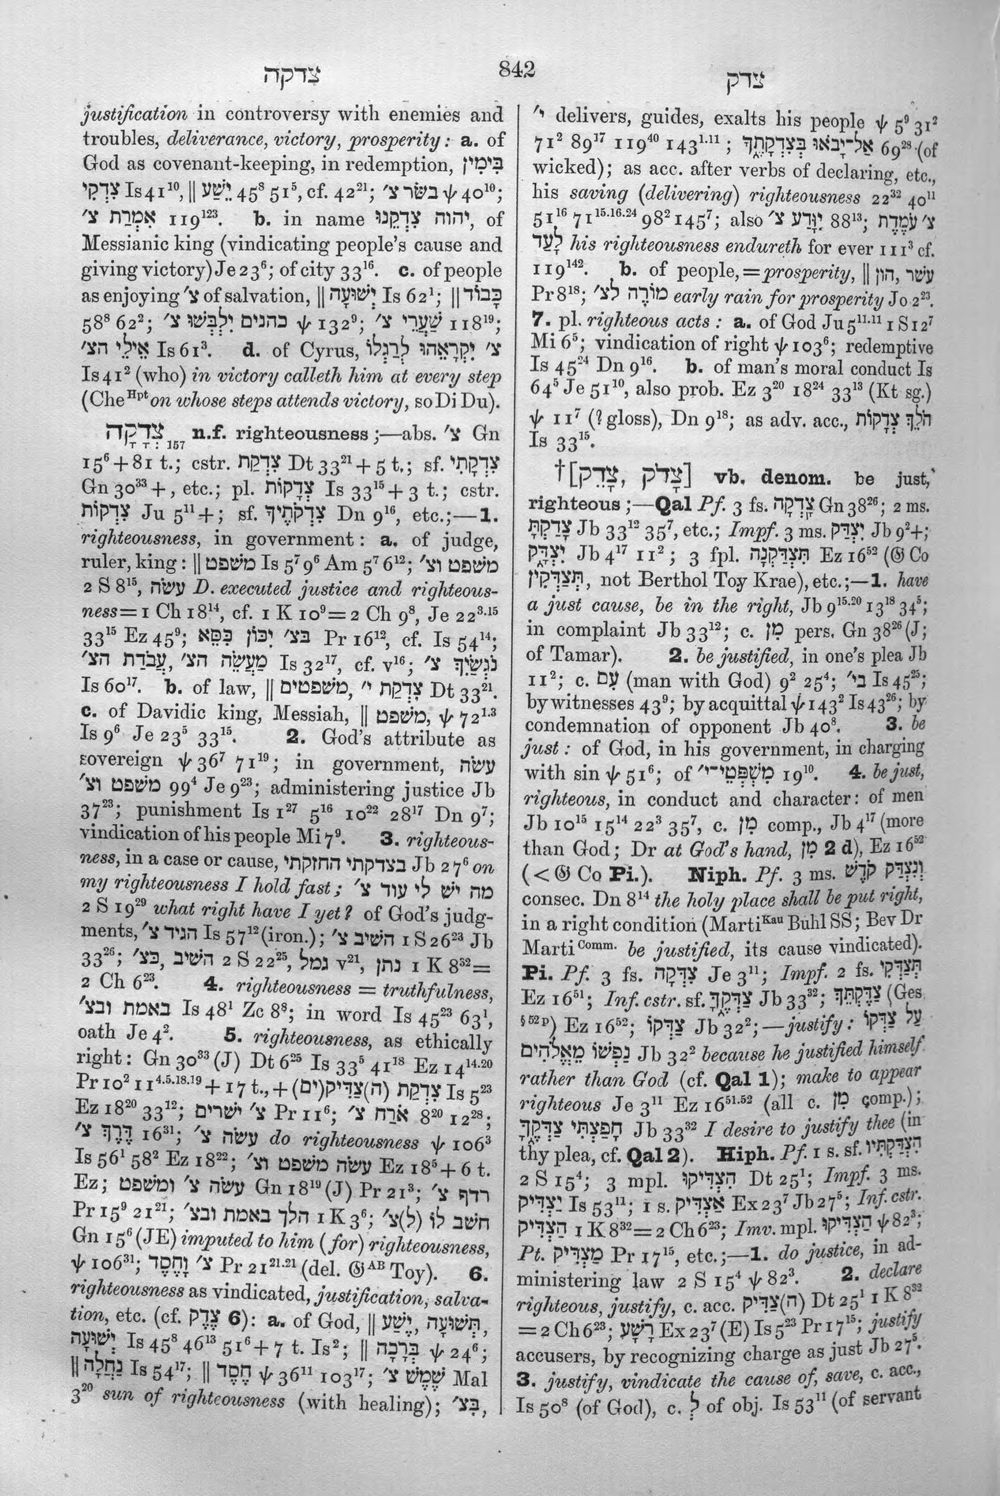 צדקה
842
צדק
justification in controversy with enemies and
troubles, deliverance, victory, prosperity: a. of
God as covenant-keeping, in redemption, בִּימִין
צִדְקִי Is 41¹⁰, ‖ יֵשַׁע 45⁸ 51⁵, cf. 42²¹; בִּשֵּׂר צ׳ ψ 40¹⁰;
אִמְרַת צ׳ 119¹²³. b. in name יהוה צִדְקֵנוּ, of
Messianic king (vindicating people's cause and
giving victory) Je 23⁶; of city 33¹⁶. c. of people
as enjoying צ׳ of salvation, ‖ יְשׁוּעָה Is 62¹; ‖ כָּבוֹד
58⁸ 62²; כהנים יִלְבְּשׁוּ צ׳ ψ 132⁹; שַׁעֲרֵי צ׳ 118¹⁹;
אֵילֵי הצ׳ Is 61³. d. of Cyrus, צ׳ יִקְרָאֵהוּ לְרַגְלוֹ
Is 41² (who) in victory calleth him at every step
(Che Hpt on whose steps attends victory, so Di Du).
צְדָקָה 157 n.f. righteousness;—abs. צ׳ Gn
15⁶ + 81 t.; cstr. צִדְקַת Dt 33²¹ + 5 t.; sf. צִדְקָתִי
Gn 30³³ +, etc.; pl. צְדָקוֹת Is 33¹⁵ + 3 t.; cstr.
צִדְקוֹת Ju 5¹¹ +; sf. צִדְקֹתֶיךָ Dn 9¹⁶, etc.;—1.
righteousness, in government: a. of judge,
ruler, king: ‖ משפט Is 5⁷ 9⁶ Am 5⁷ 6¹²; משפט וצ׳
עשׂה 2 S 8¹⁵, D. executed justice and righteous-
ness = 1 Ch 18¹⁴, cf. 1 K 10⁹ = 2 Ch 9⁸, Je 22³·¹⁵
33¹⁵ Ez 45⁹; בצ׳ יִכּוֹן כִּסֵּא Pr 16¹², cf. Is 54¹⁴;
מַעֲשֵׂה הצ׳, עֲבֹדַת הצ׳ Is 32¹⁷, cf. v¹⁶; נֹגְשַׂיִךְ צ׳
Is 60¹⁷. b. of law, ‖ משפטים, צִדְקַת י׳ Dt 33²¹.
c. of Davidic king, Messiah, ‖ משפט, ψ 72¹·³
Is 9⁶ Je 23⁵ 33¹⁵. 2. God's attribute as
sovereign ψ 36⁷ 71¹⁹; in government, עשׂה
משפט וצ׳ 99⁴ Je 9²³; administering justice Jb
37²³; punishment Is 1²⁷ 5¹⁶ 10²² 28¹⁷ Dn 9⁷;
vindication of his people Mi 7⁹. 3. righteous-
ness, in a case or cause, בצדקתי החזקתי Jb 27⁶ on
my righteousness I hold fast; מה יש לי עוד צ׳
2 S 19²⁹ what right have I yet? of God's judg-
ments, הגיד צ׳ Is 57¹² (iron.); השיב צ׳ 1 S 26²³ Jb
33²⁶; השיב כצ׳, 2 S 22²⁵, גמל v²¹, נתן 1 K 8³² =
2 Ch 6²³. 4. righteousness = truthfulness,
באמת ובצ׳ Is 48¹ Zc 8⁸; in word Is 45²³ 63¹,
oath Je 4². 5. righteousness, as ethically
right: Gn 30³³ (J) Dt 6²⁵ Is 33⁵ 41¹⁸ Ez 14¹⁴·²⁰
Pr 10² 11⁴·⁵·¹⁸·¹⁹ + 17 t., + צִדְקַת (ה)צַדִּיק(ים) Is 5²³
Ez 18²⁰ 33¹²; צ׳ ישרים Pr 11⁶; אֹרַח צ׳ 8²⁰ 12²⁸;
דֶּרֶךְ צ׳ 16³¹; עשׂה צ׳ do righteousness ψ 106³
Is 56¹ 58² Ez 18²²; עשׂה משפט וצ׳ Ez 18⁵ + 6 t.
Ez; עשׂה צ׳ ומשפט Gn 18¹⁹ (J) Pr 21³; רדף צ׳
Pr 15⁹ 21²¹; הלך באמת ובצ׳ 1 K 3⁶; חשב לו (ל)צ׳
Gn 15⁶ (JE) imputed to him (for) righteousness,
ψ 106³¹; צ׳ וָחֶסֶד Pr 21²¹·²¹ (del. 𝔊AB Toy). 6.
righteousness as vindicated, justification, salva-
tion, etc. (cf. צֶדֶק 6): a. of God, ‖ יֶשַׁע, תְּשׁוּעָה,
יְשׁוּעָה Is 45⁸ 46¹³ 51⁶ + 7 t. Is²; ‖ בְּרָכָה ψ 24⁵;
‖ נַחֲלָה Is 54¹⁷; ‖ חֶסֶד ψ 36¹¹ 103¹⁷; שֶׁמֶשׁ צ׳ Mal
3²⁰ sun of righteousness (with healing); בְּצ׳,
י׳ delivers, guides, exalts his people ψ 5⁹ 31²
71² 89¹⁷ 119⁴⁰ 143¹·¹¹; אַל־יָבֹאוּ בְּצִדְקָתֶךָ 69²⁸ (of
wicked); as acc. after verbs of declaring, etc.,
his saving (delivering) righteousness 22³² 40¹¹
51¹⁶ 71¹⁵·¹⁶·²⁴ 98² 145⁷; also יִוָּדַע צ׳ 88¹³; צ׳ עֹמֶדֶת
לָעַד his righteousness endureth for ever 111³ cf.
119¹⁴². b. of people, = prosperity, ‖ עשר, הון,
Pr 8¹⁸; מוֹרֶה לצ׳ early rain for prosperity Jo 2²³.
7. pl. righteous acts: a. of God Ju 5¹¹·¹¹ 1 S 12⁷
Mi 6⁵; vindication of right ψ 103⁶; redemptive
Is 45²⁴ Dn 9¹⁶. b. of man's moral conduct Is
64⁵ Je 51¹⁰, also prob. Ez 3²⁰ 18²⁴ 33¹³ (Kt sg.)
ψ 11⁷ (? gloss), Dn 9¹⁸; as adv. acc., הֹלֵךְ צְדָקוֹת
Is 33¹⁵.
†[צָדֵק, צָדַק] vb. denom. be just,
righteous;—Qal Pf. 3 fs. צָֽדְקָה Gn 38²⁶; 2 ms.
צָדַקְתָּ Jb 33¹² 35⁷, etc.; Impf. 3 ms. יִצְדַּק Jb 9² +;
יִצְדָּק Jb 4¹⁷ 11²; 3 fpl. תִּצְדַּקְנָה Ez 16⁵² (𝔊 Co
תִּצְדָּקִין, not Berthol Toy Krae), etc.;—1. have
a just cause, be in the right, Jb 9¹⁵·²⁰ 13¹⁸ 34⁵;
in complaint Jb 33¹²; c. מִן pers. Gn 38²⁶ (J;
of Tamar). 2. be justified, in one's plea Jb
11²; c. עִם (man with God) 9² 25⁴; בי׳ Is 45²⁵;
by witnesses 43⁹; by acquittal ψ 143² Is 43²⁶; by
condemnation of opponent Jb 40⁸. 3. be
just: of God, in his government, in charging
with sin ψ 51⁶; of מִשְׁפְּטֵי־י׳ 19¹⁰. 4. be just,
righteous, in conduct and character: of men
Jb 10¹⁵ 15¹⁴ 22³ 35⁷, c. מִן comp., Jb 4¹⁷ (more
than God; Dr at God's hand, מִן 2 d), Ez 16⁵²
(< 𝔊 Co Pi.). Niph. Pf. 3 ms. וְנִצְדַּק קֹדֶשׁ
consec. Dn 8¹⁴ the holy place shall be put right,
in a right condition (Marti Kau Buhl SS; Bev Dr
Marti Comm. be justified, its cause vindicated).
Pi. Pf. 3 fs. צִדְּקָה Je 3¹¹; Impf. 2 fs. תְּצַדְּקִי
Ez 16⁵¹; Inf. cstr. sf. צַדְּקֶךָּ Jb 33³²; צַדֶּקְתֵּךְ (Ges
§ 52 p) Ez 16⁵²; צַדְּקוֹ Jb 32²;—justify: עַל צַדְּקוֹ
נַפְשׁוֹ מֵאֱלֹהִים Jb 32² because he justified himself
rather than God (cf. Qal 1); make to appear
righteous Je 3¹¹ Ez 16⁵¹·⁵² (all c. מִן comp.);
חָפַצְתִּי צַדְּקֶךָּ Jb 33³² I desire to justify thee (in
thy plea, cf. Qal 2). Hiph. Pf. 1 s. sf. הִצְדַּקְתִּיו
2 S 15⁴; 3 mpl. הִצְדִּיקוּ Dt 25¹; Impf. 3 ms.
יַצְדִּיק Is 53¹¹; 1 s. אַצְדִּיק Ex 23⁷ Jb 27⁵; Inf. cstr.
הַצְדִּיק 1 K 8³² = 2 Ch 6²³; Imv. mpl. הַצְדִּיקוּ ψ 82³;
Pt. מַצְדִּיק Pr 17¹⁵, etc.;—1. do justice, in ad-
ministering law 2 S 15⁴ ψ 82³. 2. declare
righteous, justify, c. acc. צַדִּיק(ה) Dt 25¹ 1 K 8³²
= 2 Ch 6²³; רָשָׁע Ex 23⁷ (E) Is 5²³ Pr 17¹⁵; justify
accusers, by recognizing charge as just Jb 27⁵.
3. justify, vindicate the cause of, save, c. acc.,
Is 50⁸ (of God), c. לְ of obj. Is 53¹¹ (of servant